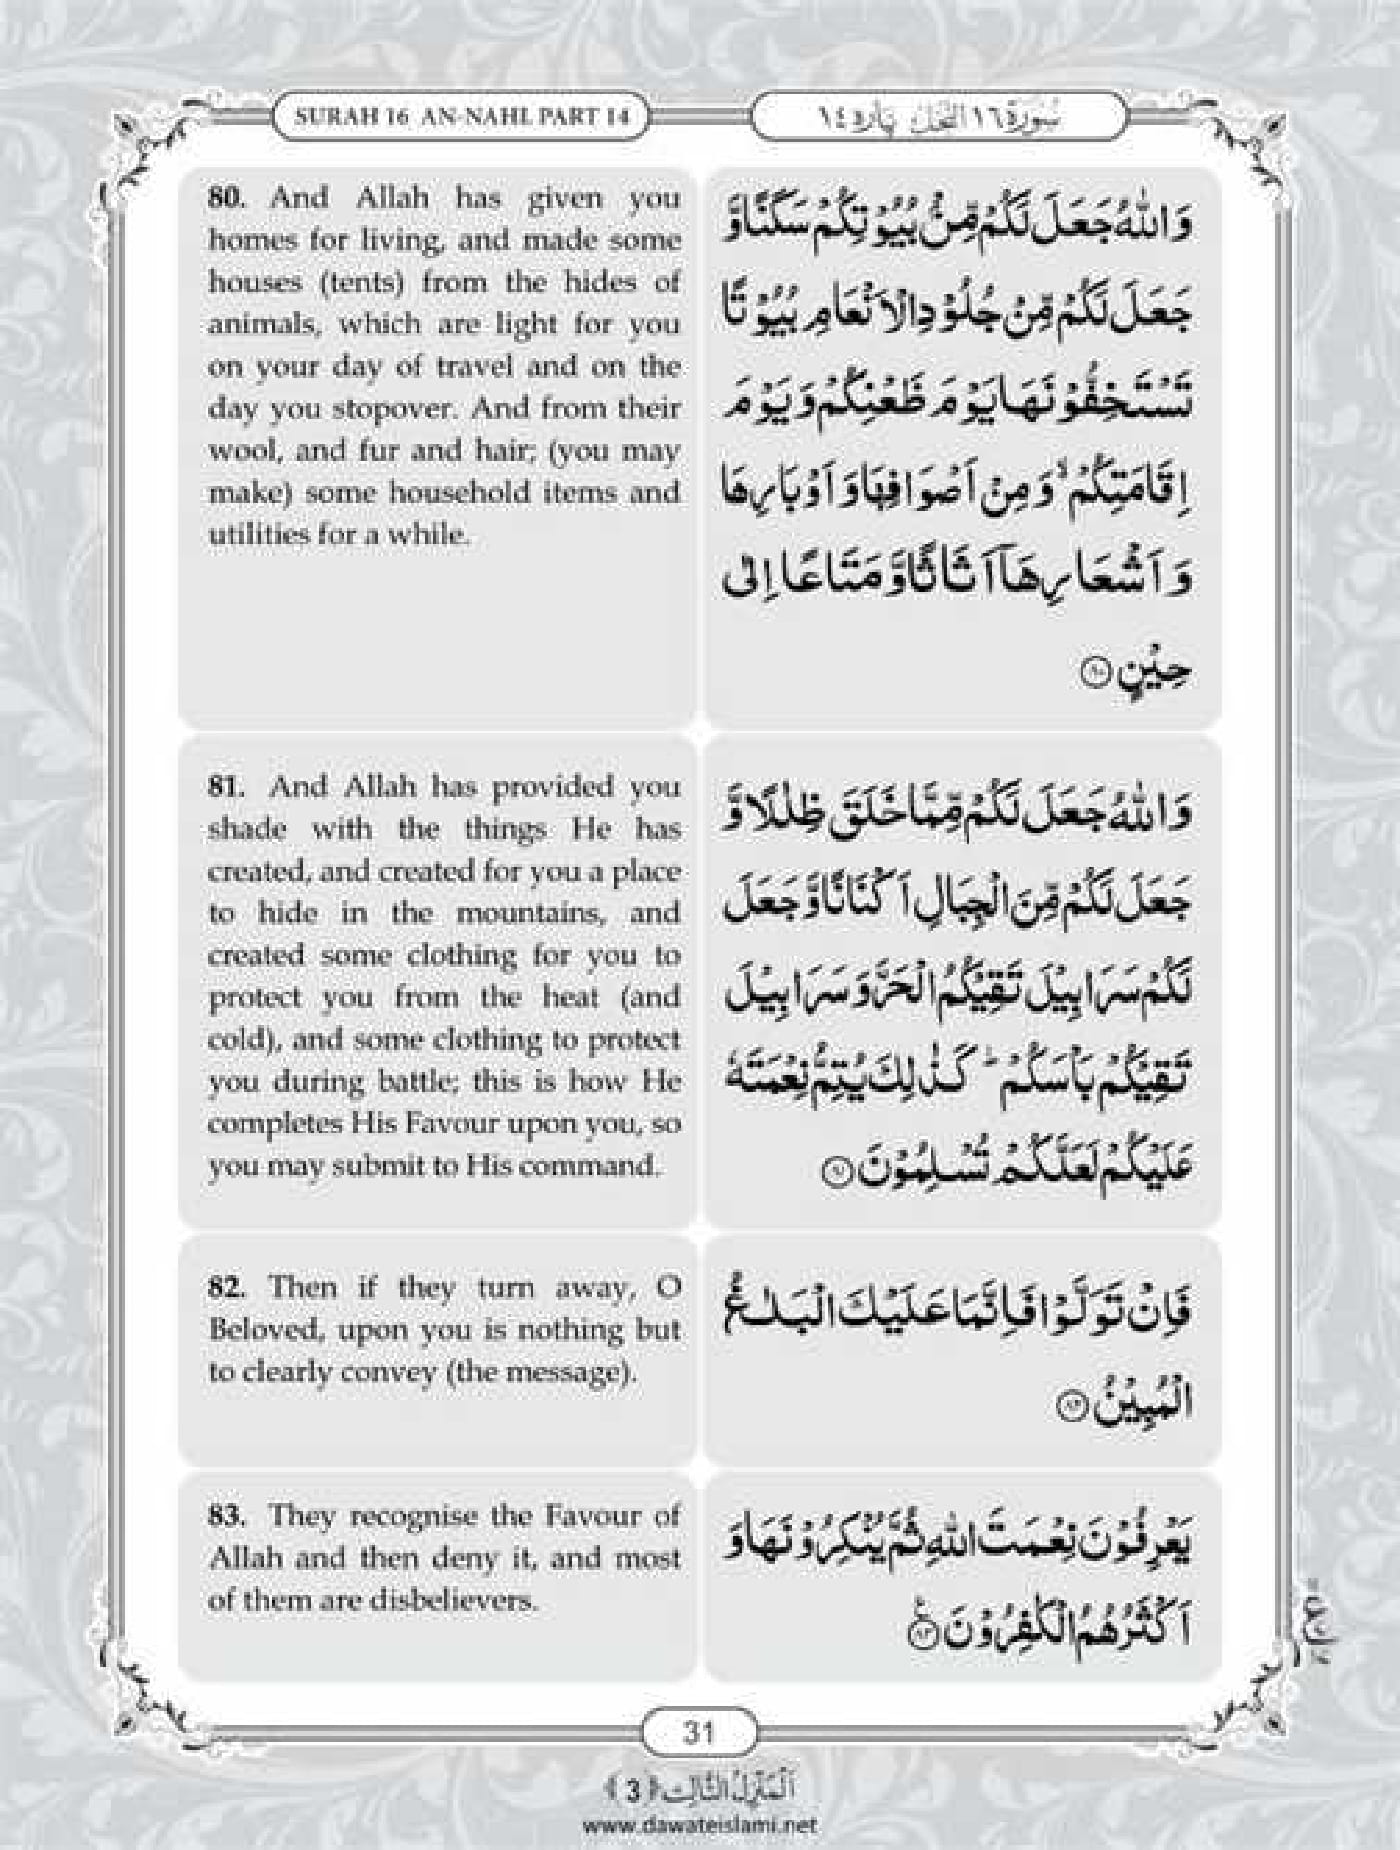 SURAH 16 AN-NAHL PART 14
سُوْرَةُ ١٦ النَّحْل پارہ ١٤
80. And Allah has given you
homes for living, and made some
houses (tents) from the hides of
animals, which are light for you
on your day of travel and on the
day you stopover. And from their
wool, and fur and hair; (you may
make) some household items and
utilities for a while.
وَاللّٰهُ جَعَلَ لَكُمْ مِّنْۢ بُيُوْتِكُمْ سَكَنًا وَّ
جَعَلَ لَكُمْ مِّنْ جُلُوْدِ الْاَنْعَامِ بُيُوْتًا
تَسْتَخِفُّوْنَهَا يَوْمَ ظَعْنِكُمْ وَ يَوْمَ
اِقَامَتِكُمْ ۙ وَ مِنْ اَصْوَافِهَا وَ اَوْبَارِهَا
وَ اَشْعَارِهَاۤ اَثَاثًا وَّ مَتَاعًا اِلٰى
حِيْنٍ ۝٨٠
81. And Allah has provided you
shade with the things He has
created, and created for you a place
to hide in the mountains, and
created some clothing for you to
protect you from the heat (and
cold), and some clothing to protect
you during battle; this is how He
completes His Favour upon you, so
you may submit to His command.
وَاللّٰهُ جَعَلَ لَكُمْ مِّمَّا خَلَقَ ظِلٰلًا وَّ
جَعَلَ لَكُمْ مِّنَ الْجِبَالِ اَكْنَانًا وَّ جَعَلَ
لَكُمْ سَرَابِيْلَ تَقِيْكُمُ الْحَرَّ وَ سَرَابِيْلَ
تَقِيْكُمْ بَاْسَكُمْ ؕ كَذٰلِكَ يُتِمُّ نِعْمَتَهٗ
عَلَيْكُمْ لَعَلَّكُمْ تُسْلِمُوْنَ ۝٨١
82. Then if they turn away, O
Beloved, upon you is nothing but
to clearly convey (the message).
فَاِنْ تَوَلَّوْا فَاِنَّمَا عَلَيْكَ الْبَلٰغُ
الْمُبِيْنُ ۝٨٢
83. They recognise the Favour of
Allah and then deny it, and most
of them are disbelievers.
يَعْرِفُوْنَ نِعْمَتَ اللّٰهِ ثُمَّ يُنْكِرُوْنَهَا وَ
اَكْثَرُهُمُ الْكٰفِرُوْنَ ۝٨٣
31
اَلْمَنْزِلُ الثَّالِث ﴿ 3 ﴾
www.dawateislami.net